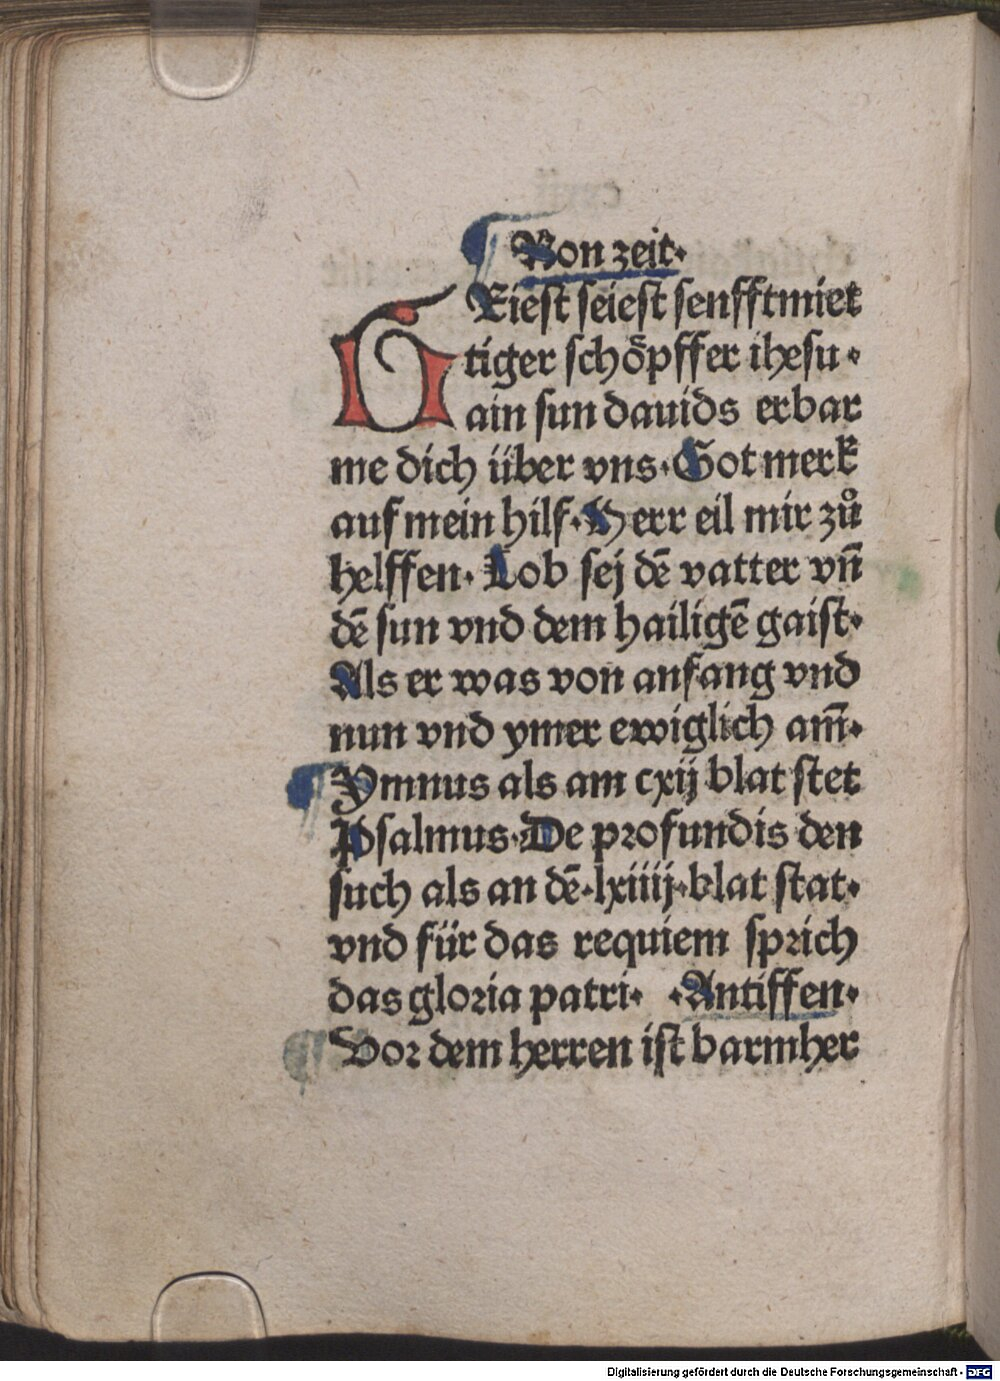 Non zeit·
GEiest seiest senfftmiet
tiger schöpffer ihesu·
ain sun dauids erbar
me dich über vns·Got merk
auf mein hilf·Herr eil mir zů
helffen·Lob sej dē vatter vn̄
dē sun vnd dem hailigē gaist·
Als er was von anfang vnd
nun vnd ymer ewiglich am̄·
Ymnus als am cxij blat stet
Psalmus·De profundis den
such als an dē·lxiiij·blat stat·
vnd für das requiem sprich
das gloria patri· ·Antiffen·
Vor dem herren ist barmher
Digitalisierung gefördert durch die Deutsche Forschungsgemeinschaft - DFG